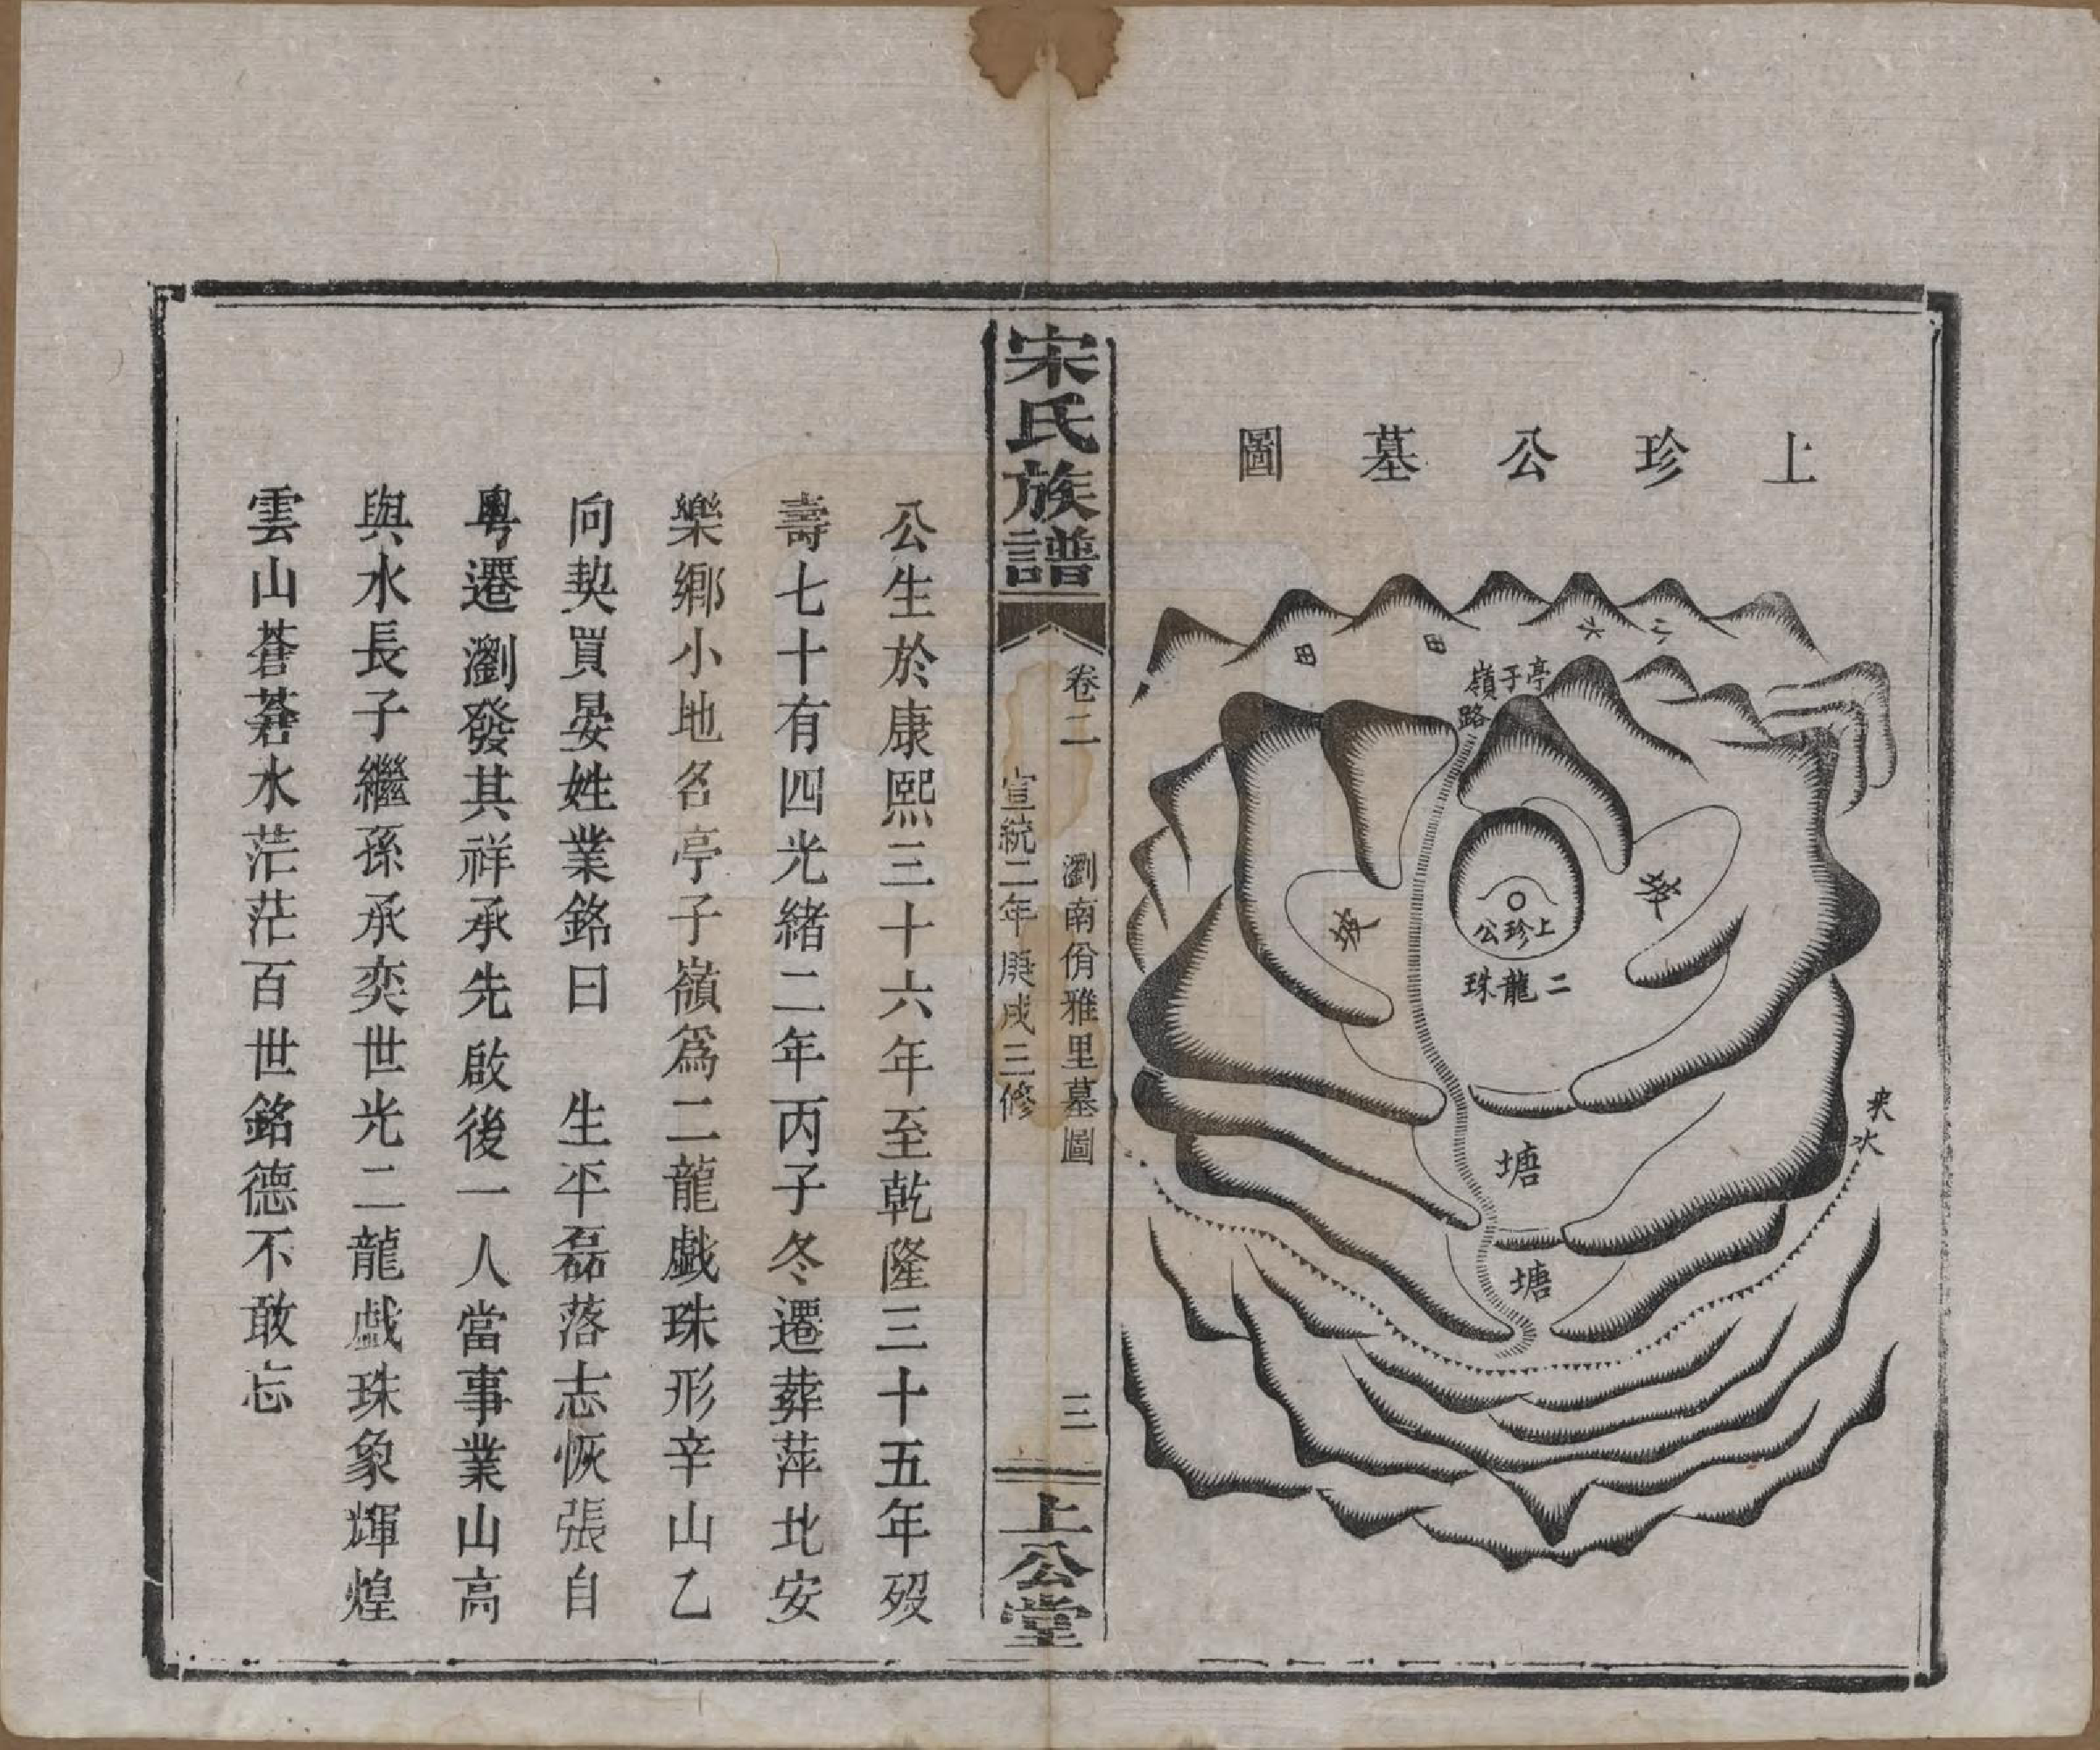 上珍公墓圖
田
田
水
小
亭子嶺
路
上珍公
二龍珠
塘
塘
夾水
宋氏族譜
卷二
瀏南份雅里墓圖
三
宣統二年庚戌三修
上公堂
公生於康熙三十六年至乾隆三十五年歿
壽七十有四光緒二年丙子冬遷葬萍北安
樂鄉小地名亭子嶺為二龍戯珠形辛山乙
向契買晏姓業銘曰　生平磊落志恢張自
粤遷瀏發其祥承先啟後一人當事業山高
與水長子繼孫承奕世光二龍戯珠象輝煌
雲山蒼蒼水茫茫百世銘德不敢忘